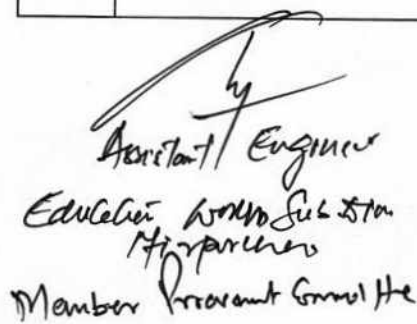 Assistant Engineer
Education Works Sub Divn
Mirpurkhas
Member Procurement Committee